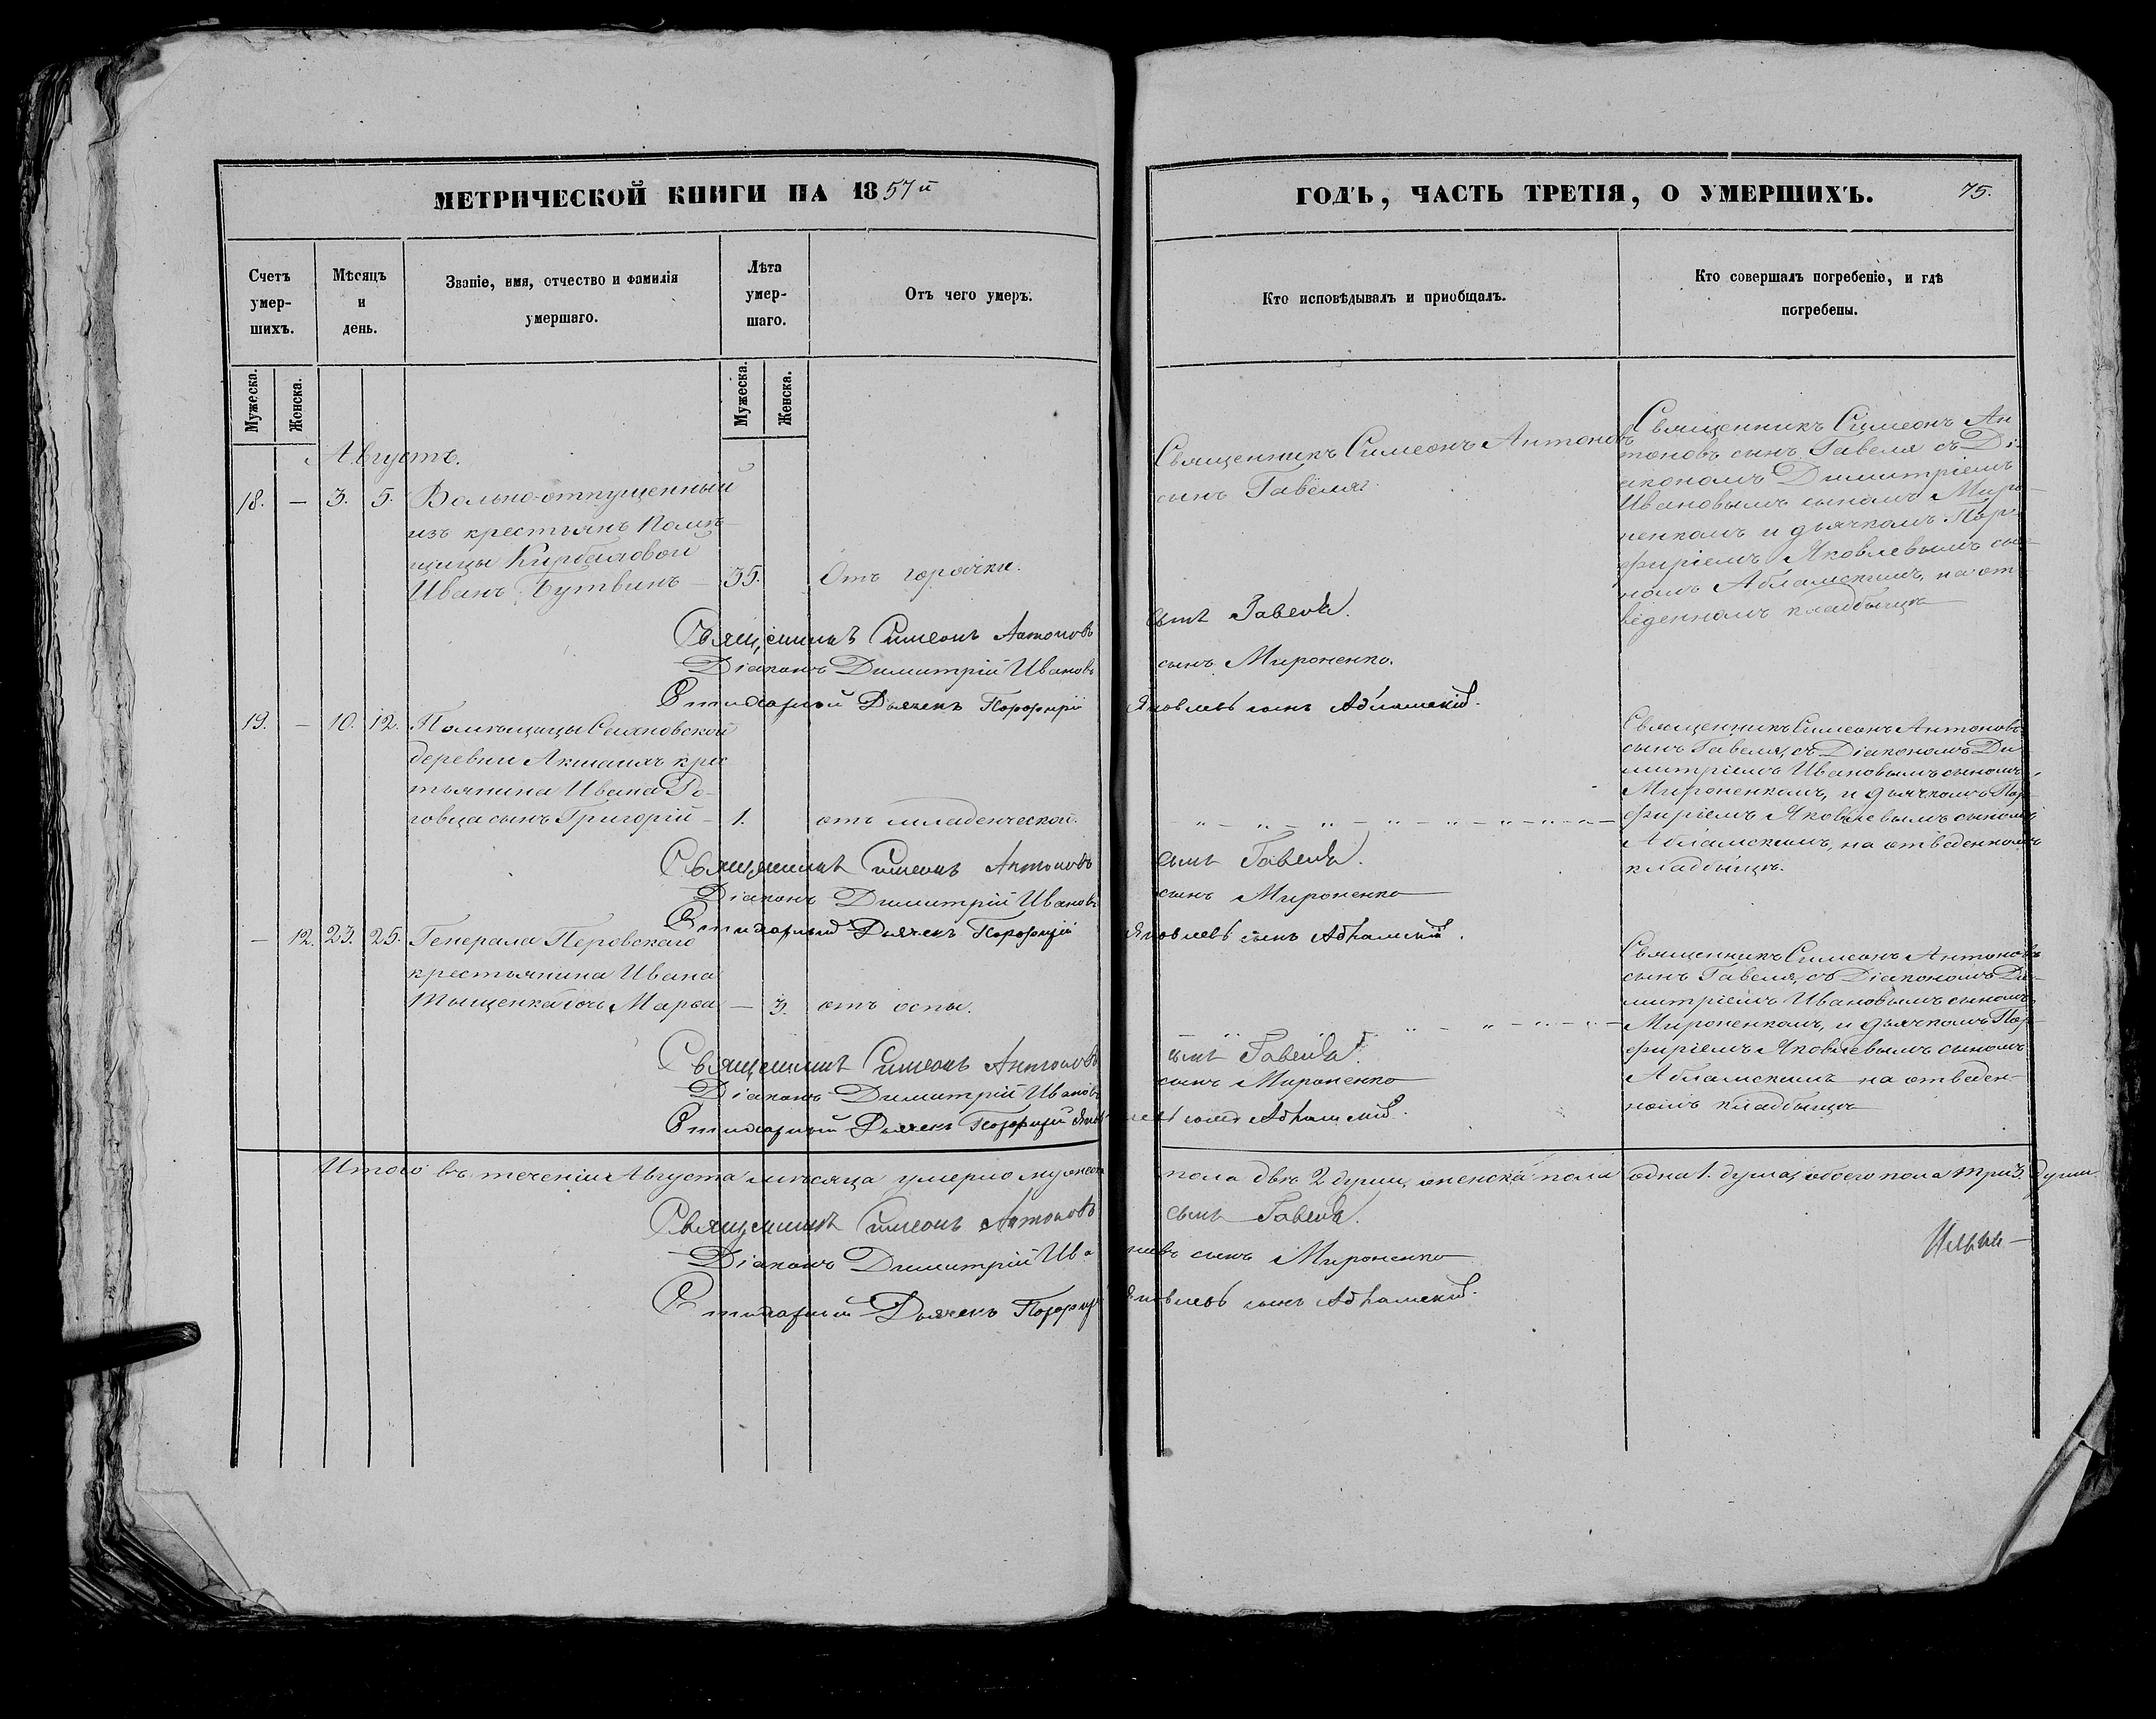 МЕТРИЧЕСКОЙ КНИГИ НА 1857й
Счетъ умер-шихъ.
Мѣсяцъ и день.
Званіе, имя, отчество и фамилія умершаго.
Лѣта умер-шаго.
Отъ чего умеръ.
Мужеска.
Женска.
Мужеска.
Женска.
Августъ.
18. — 3. 5. Вольно-отпущенный
изъ крестьянъ Помѣ-
щицы
Иванъ Бутвинъ — 35. Отъ горячки.
Священникъ Симеонъ Антоновъ
Діаконъ Димитрій Ивановъ
Дьячекъ Порфирій
19. — 10. 12. Помѣщицы Селяновской
деревни крес
тьянина Ивана Ро-
говца сынъ Григорій — 1. отъ младенческой.
Священникъ Симеонъ Антоновъ
Діаконъ Димитрій Ивановъ
Дьячекъ Порфирій
— 12. 23. 25. Генерала Перовскаго
крестьянина Ивана
Тыщенка дочь Марѳа — 3. отъ оспы.
Священникъ Симеонъ Антоновъ
Діаконъ Димитрій Ивановъ
Дьячекъ Порфирій Яков
Итого въ теченіи Августа мѣсяца умерло мужеска
Священникъ Симеонъ Антоновъ
Діаконъ Димитрій Ива
Дьячекъ Порфирі
ГОДЪ, ЧАСТЬ ТРЕТІЯ, О УМЕРШИХЪ. 75.
Кто исповѣдывалъ и пріобщалъ.
Кто совершалъ погребеніе, и гдѣ
погребены.
Священникъ Симеонъ Антоновъ
сынъ Гавеля.
Священникъ Симеонъ Ан
тоновъ сынъ Гавеля съ Ді-
акономъ Димитріемъ
Ивановымъ сыномъ Миро-
ненкомъ и дьячкомъ Пор-
фиріемъ Яковлевымъ сы-
номъ Абламскимъ, на от
веденномъ кладбищѣ
сынъ Гавеля.
сынъ Мироненко.
Яковлевъ сынъ Абламскій.
Священникъ Симеонъ Антоновъ
сынъ Гавеля, съ Діакономъ Ди
митріемъ Ивановымъ сыномъ
Мироненкомъ, и дьячкомъ Пор-
фиріемъ Яковлевымъ сыномъ
Абламскимъ, на отведенномъ
кладбищѣ.
сынъ Гавеля.
сынъ Мироненко
Яковлевъ сынъ Абламскій.
Священникъ Симеонъ Антоновъ
сынъ Гавеля, съ Діакономъ Ди-
митріемъ Ивановымъ сыномъ
Мироненкомъ, и дьячкомъ Пор-
фиріемъ Яковлевымъ сыномъ
Абламскимъ на отведен-
номъ кладбищѣ
сынъ Гавеля.
сынъ Мироненко
левъ сынъ Абламскій.
пола двѣ 2 души, женска пола одна 1. душа, обоего пола три 3. души
сынъ Гавеля.
новъ сынъ Мироненко
Яковлевъ сынъ Абламскій.